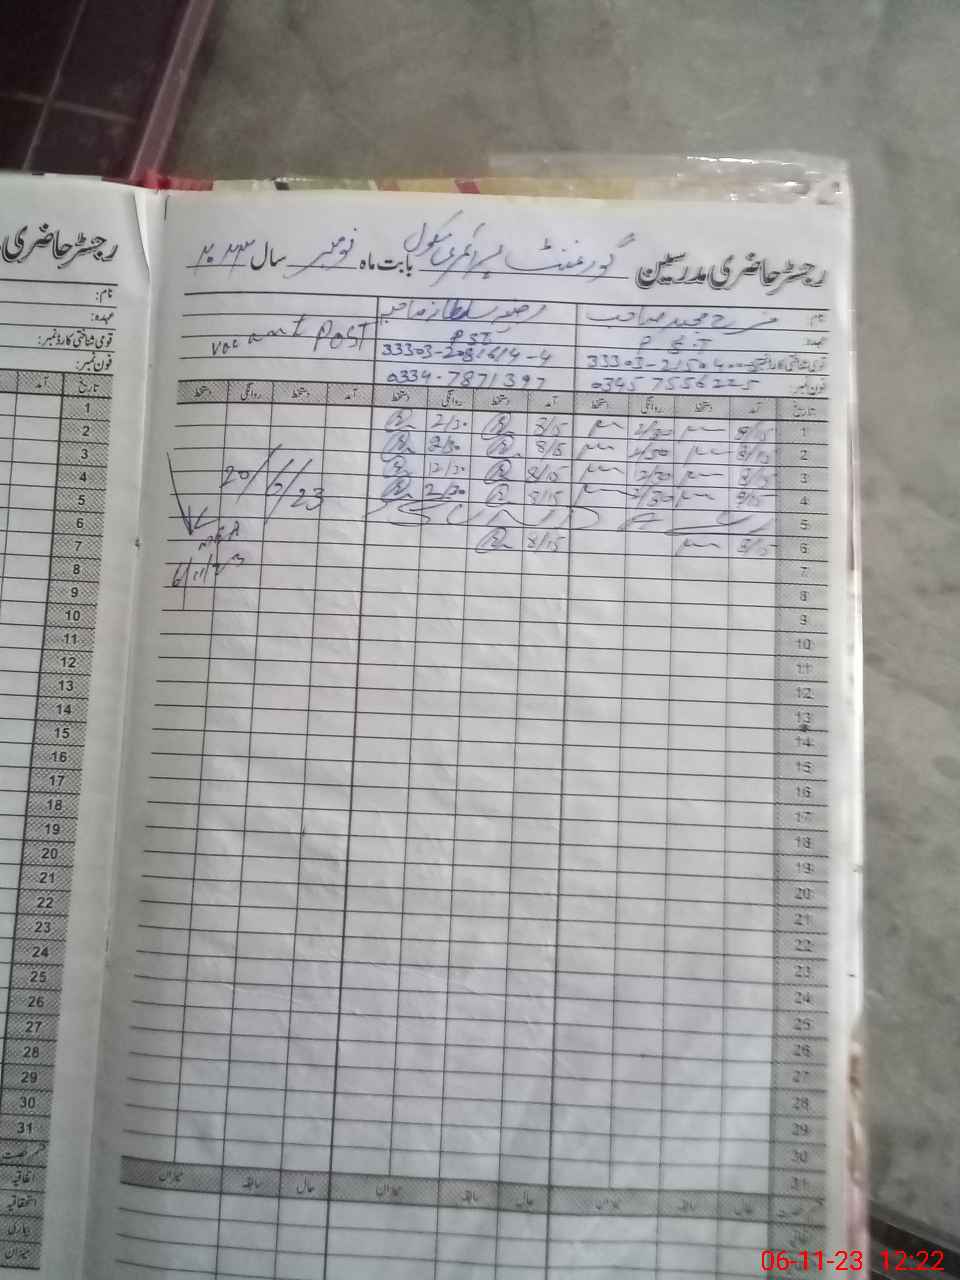 رجسٹر حاضری مدرسین گورنمنٹ پرائمری سکول بابت ماہ نومبر سال ۲۰۲۳
نام:
عہدہ: P.S.T PST vacant POST
قومی شناختی کارڈ نمبر: 33303-2081614-4
فون نمبر: 0345 7556225 0334-7871397
تاریخ آمد دستخط روانگی دستخط آمد دستخط روانگی دستخط آمد دستخط روانگی دستخط
1 8/15 2/30 8/15 2/30
2 8/15 2/30 8/15 2/30
3 8/15 2/30 8/15 12/30
4 8/15 2/30 8/15 2/30
5 SUNDAY
6 8/15 8/15
20/5/23
MEA
6/11/23
7
8
9
10
11
12
13
14
15
16
17
18
19
20
21
22
23
24
25
26
27
28
29
30
31
رخصت حال سابقہ میزان حال سابقہ میزان حال سابقہ میزان
رجسٹر حاضری
نام:
عہدہ:
قومی شناختی کارڈ نمبر:
فون نمبر:
تاریخ آمد
1
2
3
4
5
6
7
8
9
10
11
12
13
14
15
16
17
18
19
20
21
22
23
24
25
26
27
28
29
30
31
رخصت
اتفاقیہ
استحقاقیہ
بیماری
میزان
06-11-23 12:22